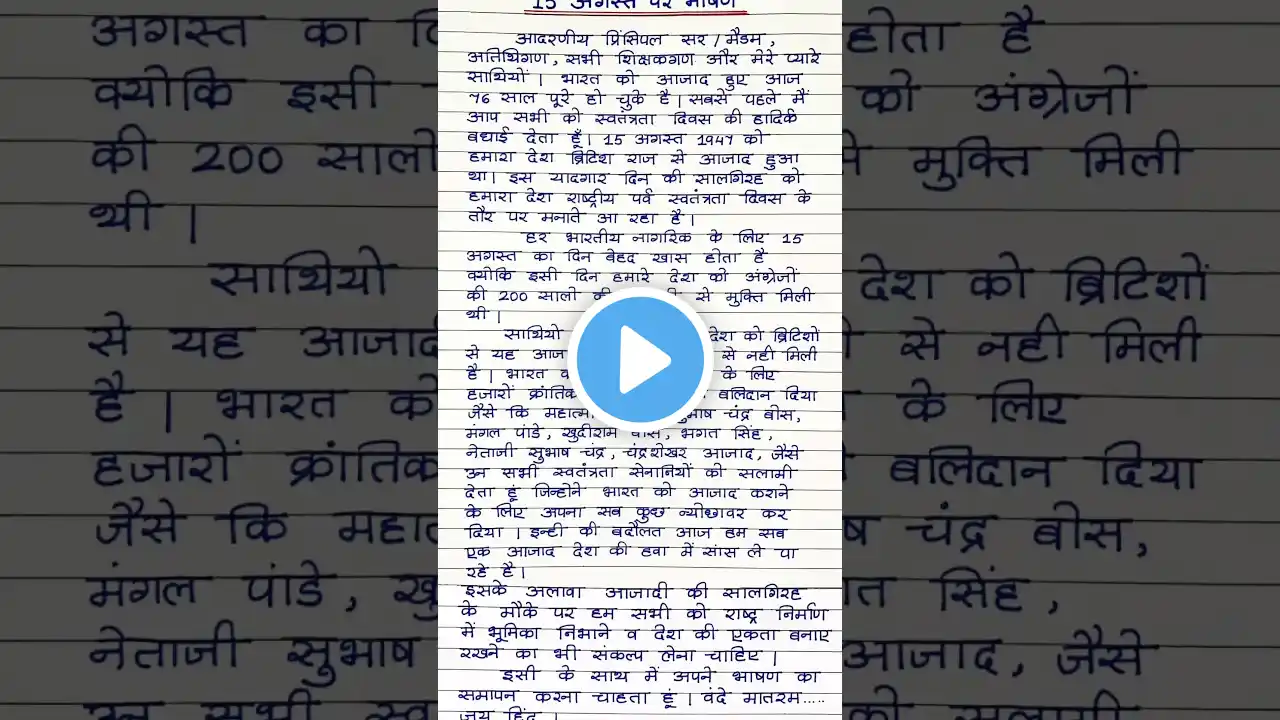 15 अगस्त पर भाषण
आदरणीय प्रिंसिपल सर / मैडम,
अतिथिगण, सभी शिक्षकगण और मेरे प्यारे
साथियों । भारत को आजाद हुए आज
76 साल पूरे हो चुके है । सबसे पहले मैं
आप सभी को स्वतंत्रता दिवस की हार्दिक
बधाई देता हूँ । 15 अगस्त 1947 को
हमारा देश ब्रिटिश राज से आजाद हुआ
था । इस यादगार दिन की सालगिरह को
हमारा देश राष्ट्रीय पर्व स्वतंत्रता दिवस के
तौर पर मनाते आ रहा है ।
हर भारतीय नागरिक के लिए 15
अगस्त का दिन बेहद खास होता है
क्योकि इसी दिन हमारे देश को अंग्रेजों
की 200 सालो से मुक्ति मिली
थी ।
साथियो देश को ब्रिटिशों
से यह आज से नही मिली
है । भारत के लिए
हजारों बलिदान दिया
जैसे कि चंद्र बोस,
मंगल पांडे, खुदीराम बोस, भगत सिंह,
नेताजी सुभाष चंद्र, चंद्रशेखर आजाद, जैसे
उन सभी स्वतंत्रता सेनानियों को सलामी
देता हूं जिन्होने भारत को आजाद कराने
के लिए अपना सब कुछ न्योछावर कर
दिया । इन्ही की बदौलत आज हम सब
एक आजाद देश की हवा में सांस ले पा
रहे है ।
इसके अलावा आजादी की सालगिरह
के मौके पर हम सभी को राष्ट्र निर्माण
में भूमिका निभाने व देश की एकता बनाए
रखने का भी संकल्प लेना चाहिए ।
इसी के साथ में अपने भाषण का
समापन करना चाहता हूं । वंदे मातरम.....
जय हिंद ।